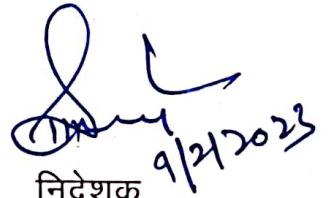 9/2/2023
निदेशक